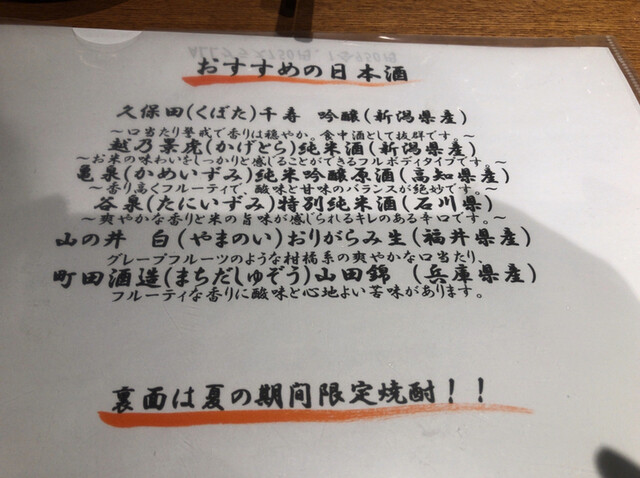 おすすめの日本酒
久保田(くぼた)千寿 吟醸(新潟県産)
～口当たり軽やかで香りは穏やか。食中酒として抜群です。～
越乃景虎(かげとら)純米酒(新潟県産)
～お米の味わいをしっかりと感じることができるフルボディタイプです。～
亀泉(かめいずみ)純米吟醸原酒(高知県産)
～香り高くフルーティで、酸味と甘味のバランスが絶妙です。～
谷泉(たにいずみ)特別純米酒(石川県)
～爽やかな香りと米の旨味が感じられるキレのある辛口です。～
山の井 白(やまのい)おりがらみ生(福井県産)
グレープフルーツのような柑橘系の爽やかな口当たり、
町田酒造(まちだしゅぞう)山田錦 (兵庫県産)
フルーティな香りに酸味と心地よい苦味があります。
裏面は夏の期間限定焼酎!!